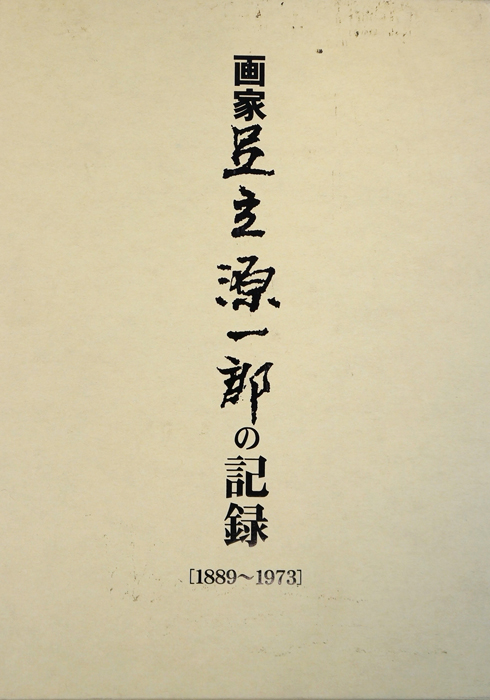 画家足立源一郎の記録
[1889〜1973]